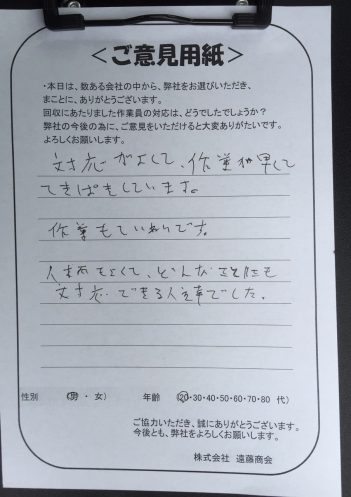 ＜ご意見用紙＞
・本日は、数ある会社の中から、弊社をお選びいただき、
まことに、ありがとうございます。
回収にあたりました作業員の対応は、どうでしたでしょうか？
弊社の今後の為に、ご意見をいただけると大変ありがたいです。
よろしくお願いします。
対応がよくて、作業が早くて
てきぱきしています。
作業もていねいです。
人柄もよくて、どんな
対応できる人達でした。
性別 （男・女） 年齢 （20・30・40・50・60・70・80 代）
ご協力いただき、誠にありがとうございます。
今後とも、弊社をよろしくお願いします。
株式会社 遠藤商会